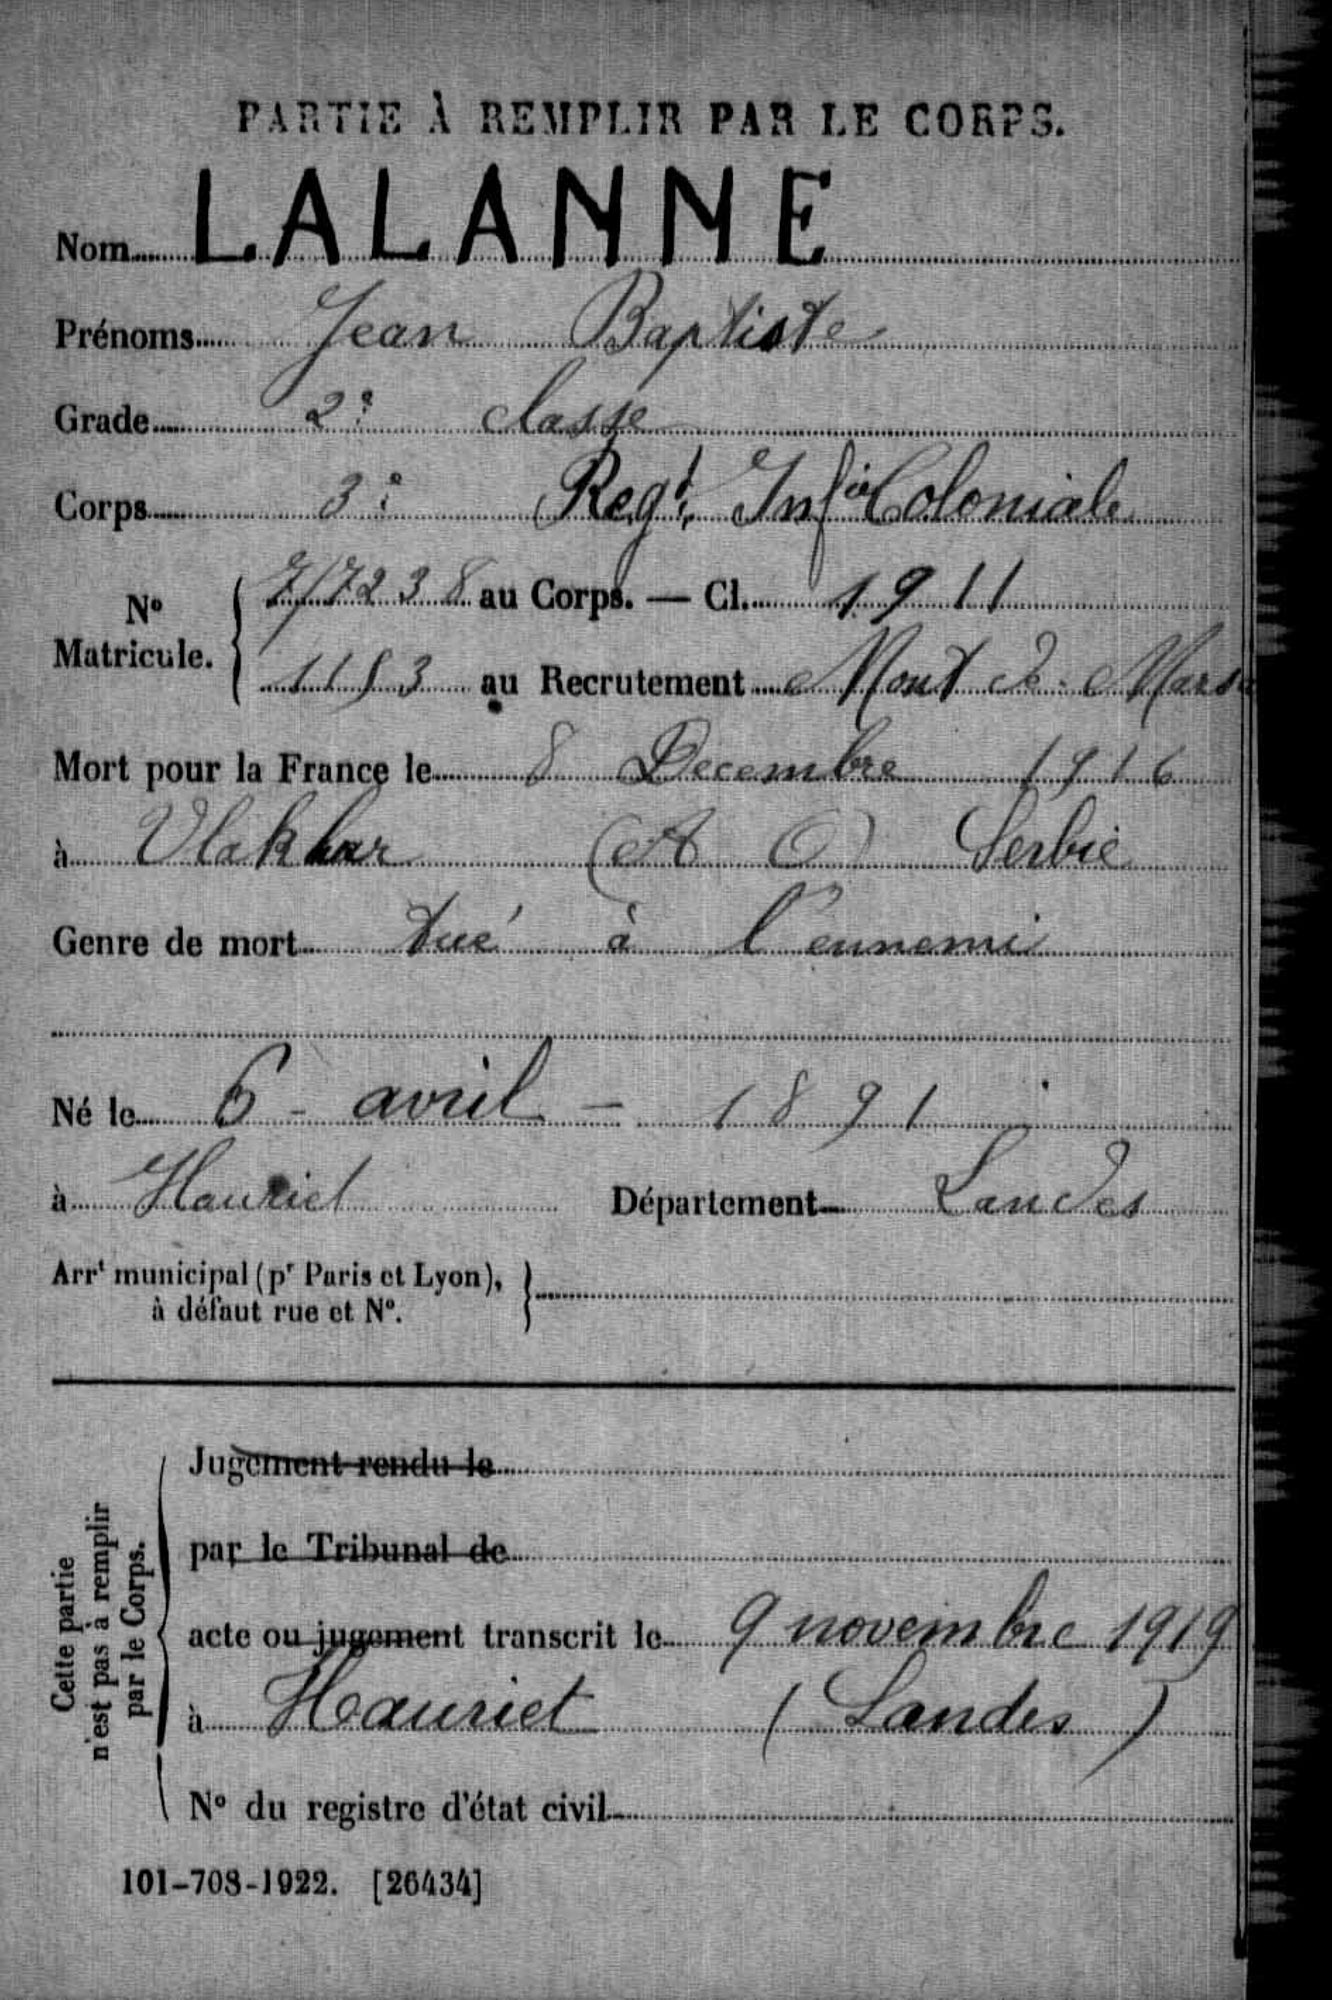 PARTIE À REMPLIR PAR LE CORPS.
Nom LALANNE
Prénoms Jean Baptiste
Grade 2e classe
Corps 3e Regt Infie Coloniale
No Matricule. 7/7238 au Corps. — Cl. 1911
1153 au Recrutement Mont de Mars
Mort pour la France le 8 Decembre 1916
à (A O) Serbie
Genre de mort tué à l'ennemi
Né le 6 - avril - 1891
à Hauriet Département Landes
Arrt municipal (pr Paris et Lyon),
à défaut rue et No.
Cette partie
n'est pas à remplir
par le Corps.
Jugement rendu le
par le Tribunal de
acte ou jugement transcrit le 9 novembre 1919
à Hauriet (Landes)
No du registre d'état civil
101-708-1922. [26434]